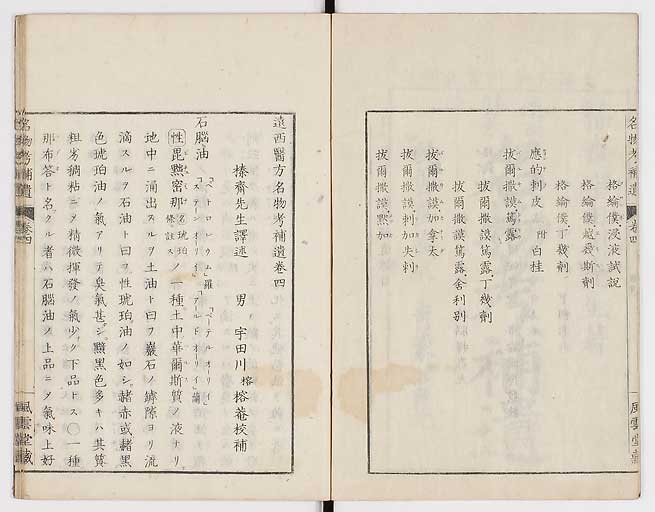 名物考補遺
卷四
風雲堂藏
格綸僕浸液試說
格綸僕越幾斯劑
格綸僕丁幾劑
應的刺皮 附白桂
拔爾撒謨篤露
拔爾撒謨篤露丁幾劑
拔爾撒謨篤露舍利別
拔爾撒謨加拿太
拔爾撒謨刺加失刺
拔爾撒謨默加
遠西醫方名物考補遺卷四
榛齋先生譯述 男 宇田川榕 榕菴校補
石腦油 「ペトロレウム」羅「ペテルオリイ」「ステンオリイ」「アールドオリイ」蘭
性昆㸃密那名琥珀條註スノ一種土中華爾斯質ノ液ナリ
地中ニ涌出スルヲ土油ト曰フ巖石ノ罅隙ヨリ流
滴スルヲ石油ト曰フ性琥珀油ノ如シ赭赤或赭黑
色琥珀油ノ氣アリテ臭氣甚シ黯黑色多キハ其質
粗劣稠粘ニメ精微揮發ノ氣少ク下品トス○一種
那布答ト名クル者ハ石腦油ノ上品ニメ氣味上好
名物考補遺
卷四
風雲堂藏